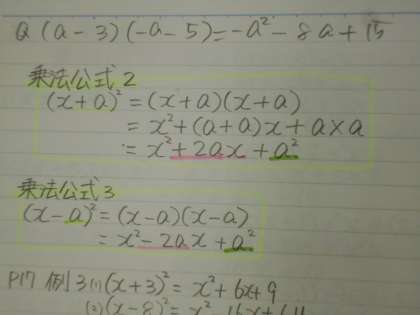 Q (a-3)(-a-5)=-a²-8a+15
乗法公式2
(x+a)²=(x+a)(x+a)
=x²+(a+a)x+a×a
=x²+2ax+a²
乗法公式3
(x-a)²=(x-a)(x-a)
=x²-2ax+a²
P17 例3(1)(x+3)²=x²+6x+9
(2)(x-8)²=x²-16x+64